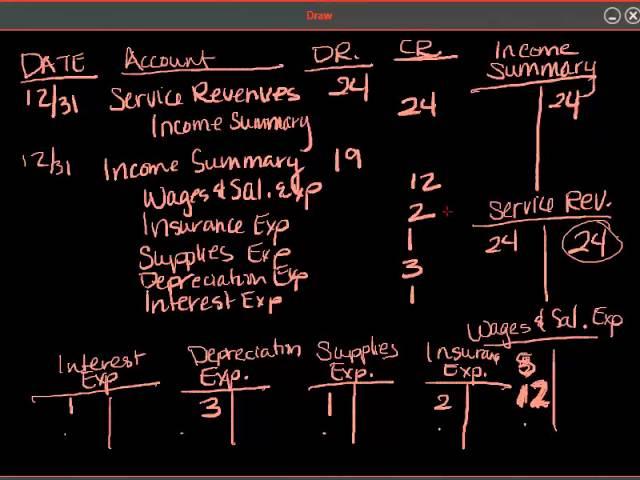 Draw
DATE Account DR. CR.
12/31 Service Revenues 24
Income Summary 24
12/31 Income Summary 19
Wages & Sal. Exp 12
Insurance Exp 2
Supplies Exp 1
Depreciation Exp 3
Interest Exp 1
Income
Summary
24
Service Rev.
24 24
Wages & Sal. Exp
12
Interest
Exp
1
Depreciation
Exp.
3
Supplies
Exp.
1
Insuran
Exp.
2